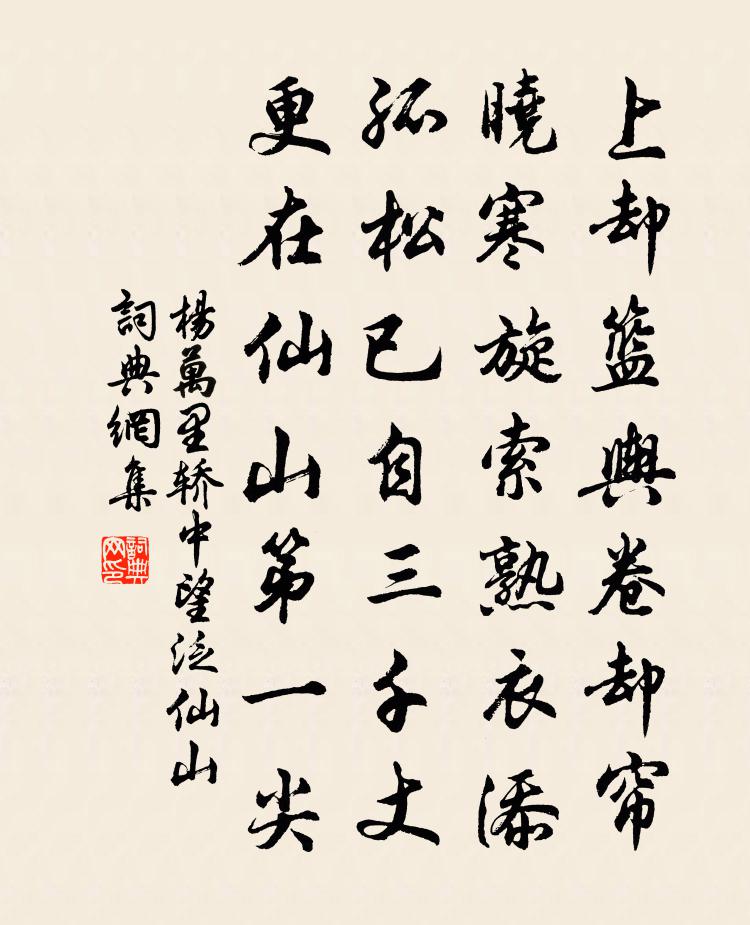 上却籃輿卷却帘
曉寒旋索熟衣添
孤松已自三千丈
更在仙山第一尖
楊萬里轿中望泛仙山
詞典網集
詞典网印